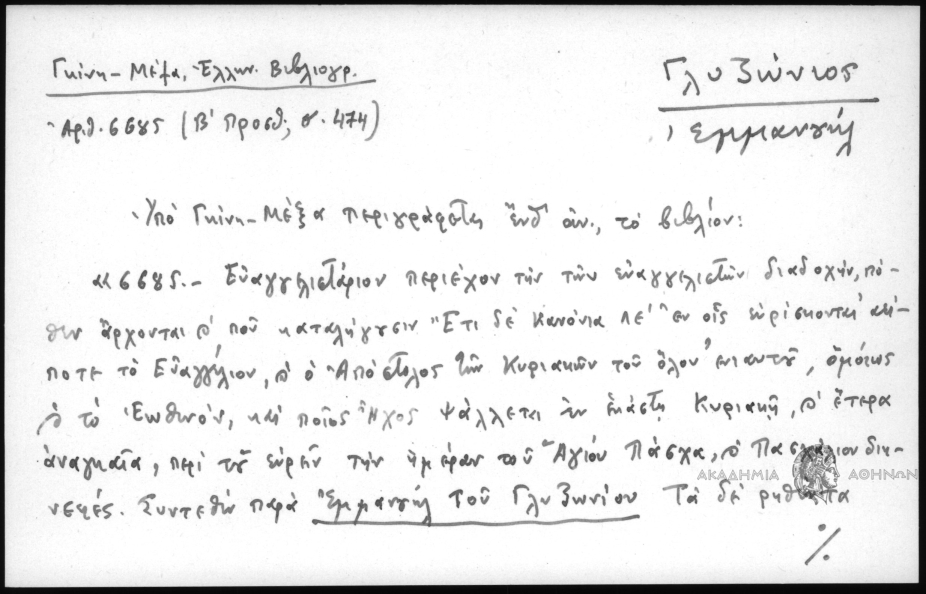 Γκίνη - Μέξα, Ἑλλην. Βιβλιογρ.
Ἀριθ. 6685 (Β' Προσθ., σ. 474)
Γλυζώνιος
Ἐμμανουήλ
Ὑπὸ Γκίνη - Μέξα περιγράφεται ἔνθ' ἀν., τὸ βιβλίον:
«6685.- Εὐαγγελιστάριον περιέχον τὴν τῶν εὐαγγελιστῶν διαδοχήν, πό-
θεν ἄρχονται καὶ ποῦ καταλήγουσιν Ἔτι δὲ Κανόνια λε' ἐν οἷς εὑρίσκονται
ποτε τὸ Εὐαγγέλιον, καὶ ὁ Ἀπόστολος τῶν Κυριακῶν τοῦ ὅλου ἐνιαυτοῦ, ὁμοίως
καὶ τὸ Ἑωθινόν, καὶ ποῖος Ἦχος ψάλλεται ἐν ἑκάστῃ Κυριακῇ, καὶ ἕτερα
ἀναγκαῖα, περὶ τοῦ εὑρεῖν τὴν ἡμέραν τοῦ Ἁγίου Πάσχα, καὶ Πασχάλιον διη-
νεκές. Συντεθὲν παρὰ Ἐμμανουὴλ τοῦ Γλυζωνίου Τὰ δὲ ῥηθέντα
./.
ΑΚΑΔΗΜΙΑ ΑΘΗΝΩΝ